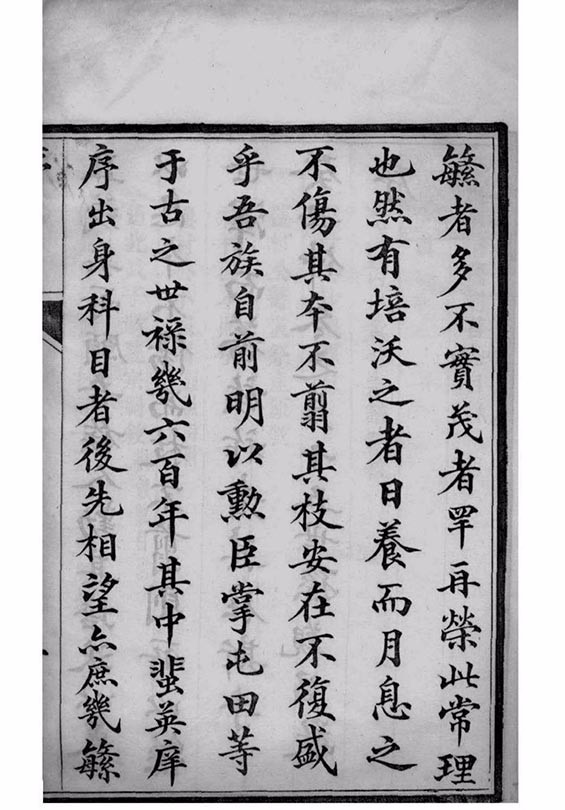 緐者多不實茂者罕再榮此常理
也然有培沃之者日養而月息之
不傷其本不翦其枝安在不復盛
乎吾族自前明以勳臣掌屯田等
于古之世祿幾六百年其中蜚英庠
序出身科目者後先相望亦庶幾緐